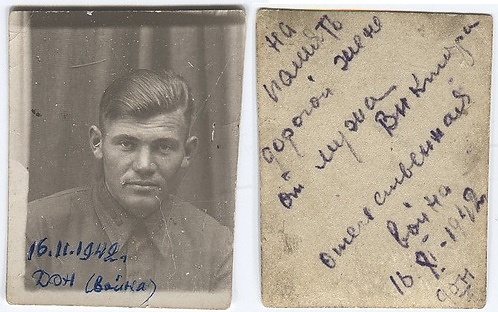 16.11.1942г.
ДОН (война)
на
память
дорогой жене
от мужа
Виктора
отечественная
война
16 XI - 1942г.
ДОН